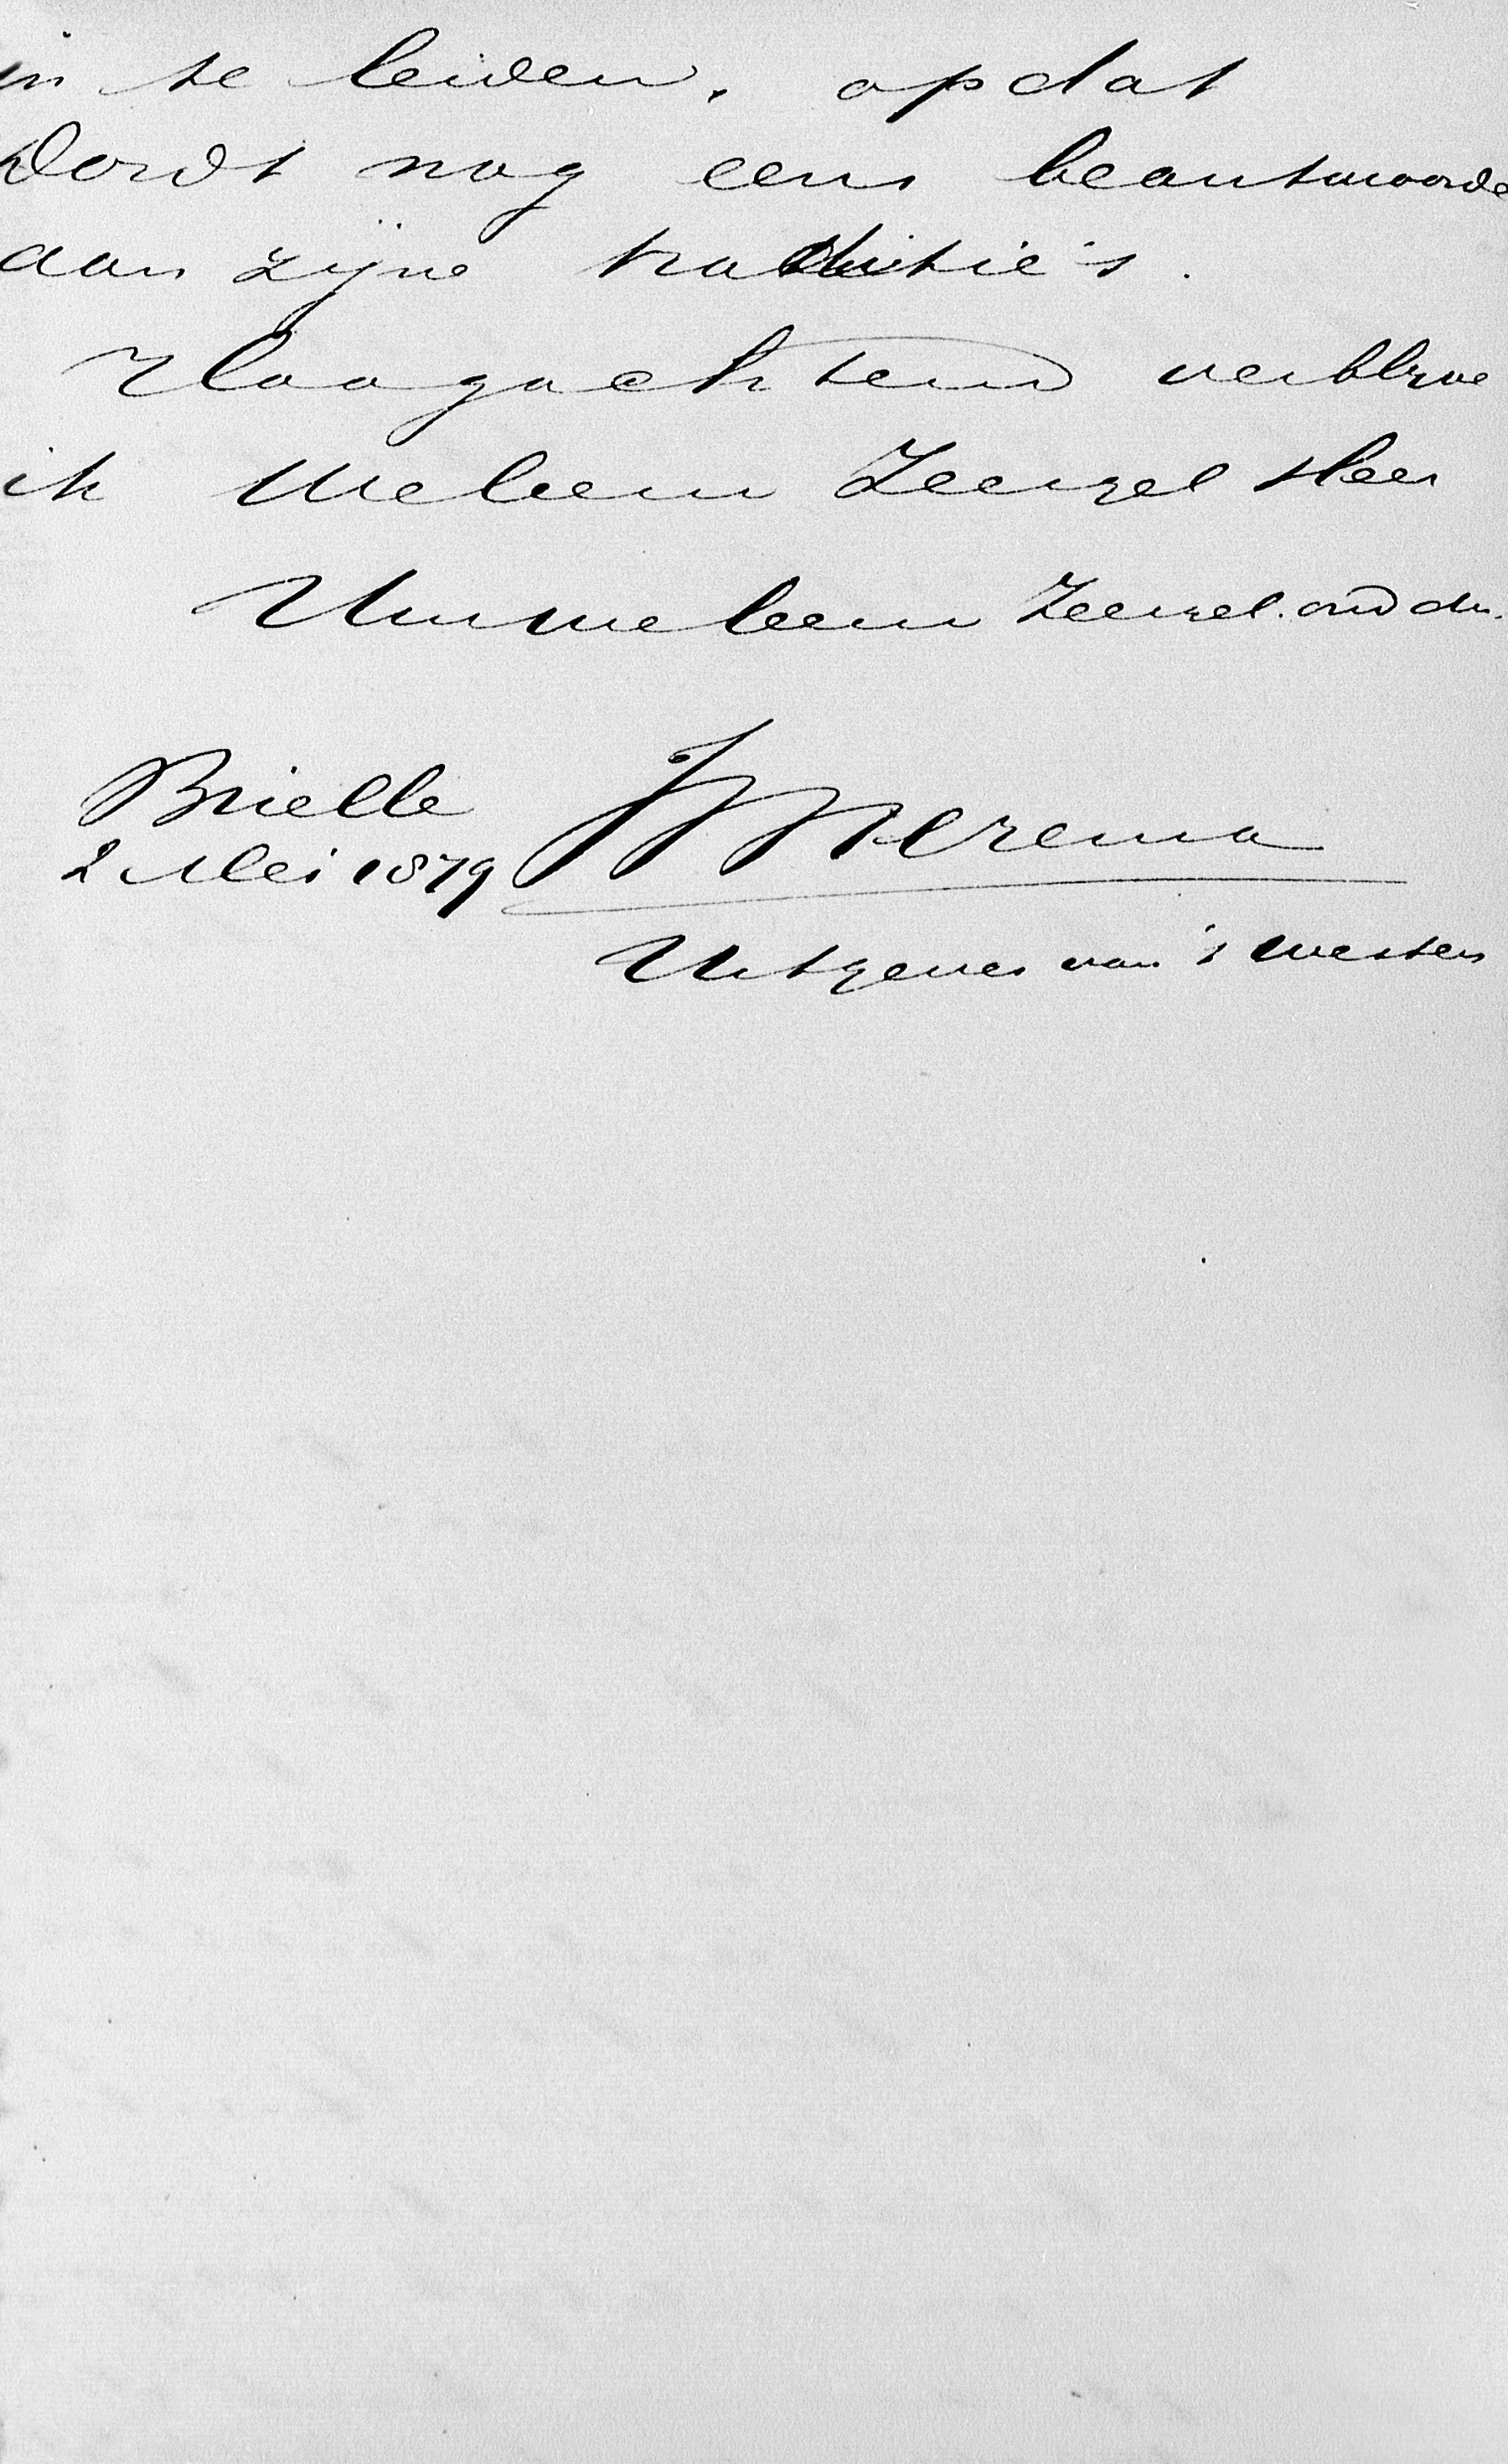 in te leiden, opdat
Dordt nog eens beantwoorde
aan zijne traditie's.
Hoogachtend verblijve
ik WelEerw ZeerGel Heer
Uw WelEerw ZeerGel. oud dr.
Brielle
2 Mei 1879
Uitgever van 't Westen